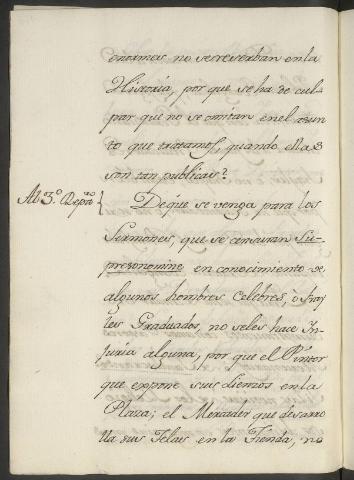 enormes no se reserban en la
Historia, por que se ha de cul-
par que no se omitan en el asun-
to que tratamos, quando ellas
son tan publicas?
Al 3.º Repº
De que se venga para los
Sermones, que se censuran
en conocimiento de
algunos hombres Celebres, ò fray-
les Graduados, no seles hace In-
juria alguna, por que el Pintor
que expone sus diseños en la
Plaza; el Mercader que desarro-
lla sus Telas en la Tienda, no